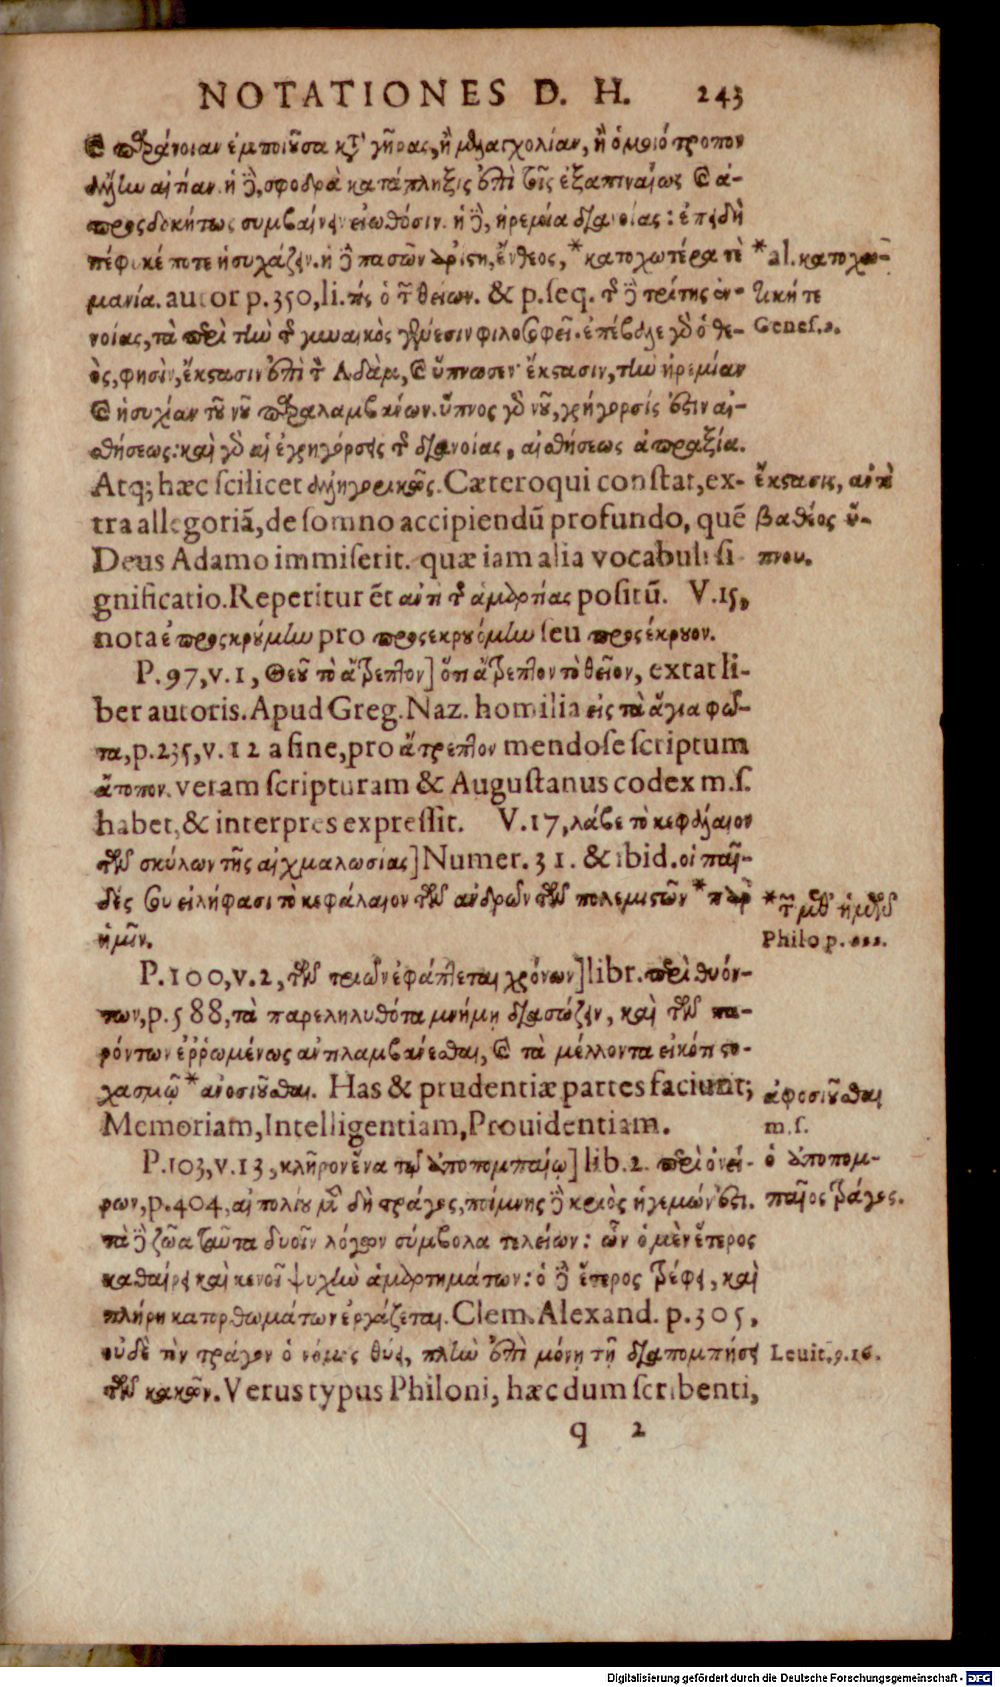 NOTATIONES D. H. 243
καὶ παράνοιαν ἐμποιοῦσα κατὰ γῆρας, ἢ μελαγχολίαν, ἢ ὁμοιότροπον
ἄλλην αἰτίαν. ἡ δὲ, σφοδρὰ κατάπληξις ἐπὶ τοῖς ἐξαπιναίως καὶ ἀ-
προσδοκήτως συμβαίνειν εἰωθόσιν. ἡ δὲ, ἠρεμία διανοίας: ἐπειδὴ
πέφυκέ ποτε ἡσυχάζειν. ἡ δὲ πασῶν ἀρίστη, ἔνθεος, * κατοχωτέρα τὲ
* al. κατοχω-
μανία. autor p. 350, li. τίς ὁ τ͂ θείων. & p. seq. τῆς δὲ τρίτης ἐν-
τικὴ τε
νοίας, τὰ περὶ τὴν τῆς γυναικὸς γένεσιν φιλοσοφεῖ. ἐπέβαλε γὰρ ὁ θε-
Genes. 2.
ὸς, φησὶν, ἔκστασιν ἐπὶ τὸν Ἀδὰμ, καὶ ὕπνωσεν· ἔκστασιν, τὴν ἠρεμίαν
καὶ ἡσυχίαν τοῦ νοῦ παραλαμβάνων. ὕπνος γὰρ νοῦ, ἐγρήγορσίς ἐστιν αἰ-
σθήσεως: καὶ γὰρ αἱ ἐγρηγόρσεις τῆς διανοίας, αἰσθήσεως ἀπραξία.
Atq; hæc scilicet ἀλληγορικῶς. Cæteroqui constat, ex-
ἔκστασις, ἀντὶ
tra allegoriã, de somno accipiendũ profundo, quẽ
βαθέος ὕ-
Deus Adamo immiserit. quæ iam alia vocabuli si
πνου.
gnificatio. Reperitur ẽt ἀντὶ τῆς ἁμαρτίας positũ. V. 15,
nota ἐπροσκρούμην pro προσεκρουόμην seu προσέκρουον.
P. 97, v. 1, Θεοῦ τὸ ἄτρεπτον] ὅτι ἄτρεπτον τὸ θεῖον, extat li-
ber autoris. Apud Greg. Naz. homilia εἰς τὰ ἅγια φῶ-
τα, p. 235, v. 12 a fine, pro ἄτρεπτον mendose scriptum
ἄτοπον. veram scripturam & Augustanus codex m. s.
habet, & interpres expressit. V. 17, λάβε τὸ κεφάλαιον
τῶν σκύλων τῆς αἰχμαλωσίας] Numer. 31. & ibid. οἱ παῖ-
δές σου εἰλήφασι τὸ κεφάλαιον τῶν ἀνδρῶν τῶν πολεμιστῶν * παρ
* τ͂ μεθ' ἡμῶν
ἡμῖν.
Philo p.
P. 100, v. 2, τῶν τριῶν ἐφάπτεται χρόνων] libr. περὶ θυόν-
των, p. 588, τὰ παρεληλυθότα μνήμῃ διασώζειν, καὶ τῶν πα-
ρόντων ἐῤῥωμένως ἀντιλαμβάνεσθαι, καὶ τὰ μέλλοντα εἰκότι στο-
χασμῷ * ἀνοσιοῦσθαι. Has & prudentiæ partes faciunt;
ἀφοσιοῦσθαι
Memoriam, Intelligentiam, Prouidentiam.
m. s.
P. 103, v. 13, κλῆρον ἕνα τῷ ἀποπομπαίῳ] lib. 2. περὶ ὀνεί-
ὁ ἀποπομ-
ρων, p. 404, αἰπολίου μὲν δὴ τράγος, ποίμνης δὲ κριὸς ἡγεμών ἐστι.
παῖος τράγος.
τὰ δὲ ζῶα ταῦτα δυοῖν λόγων σύμβολα τελείων: ὧν ὁ μὲν ἕτερος
καθαίρει καὶ κενοῖ ψυχὴν ἁμαρτημάτων: ὁ δὲ ἕτερος τρέφει, καὶ
πλήρη κατορθωμάτων ἐργάζεται. Clem. Alexand. p. 305,
οὐδὲ τὸν τράγον ὁ νόμος θύει, πλὴν ἐπὶ μόνῃ τῇ διαπομπήσει
Leuit. 9. 16.
τῶν κακῶν. Verus typus Philoni, hæc dum scribenti,
q 2
Digitalisierung gefördert durch die Deutsche Forschungsgemeinschaft - DFG